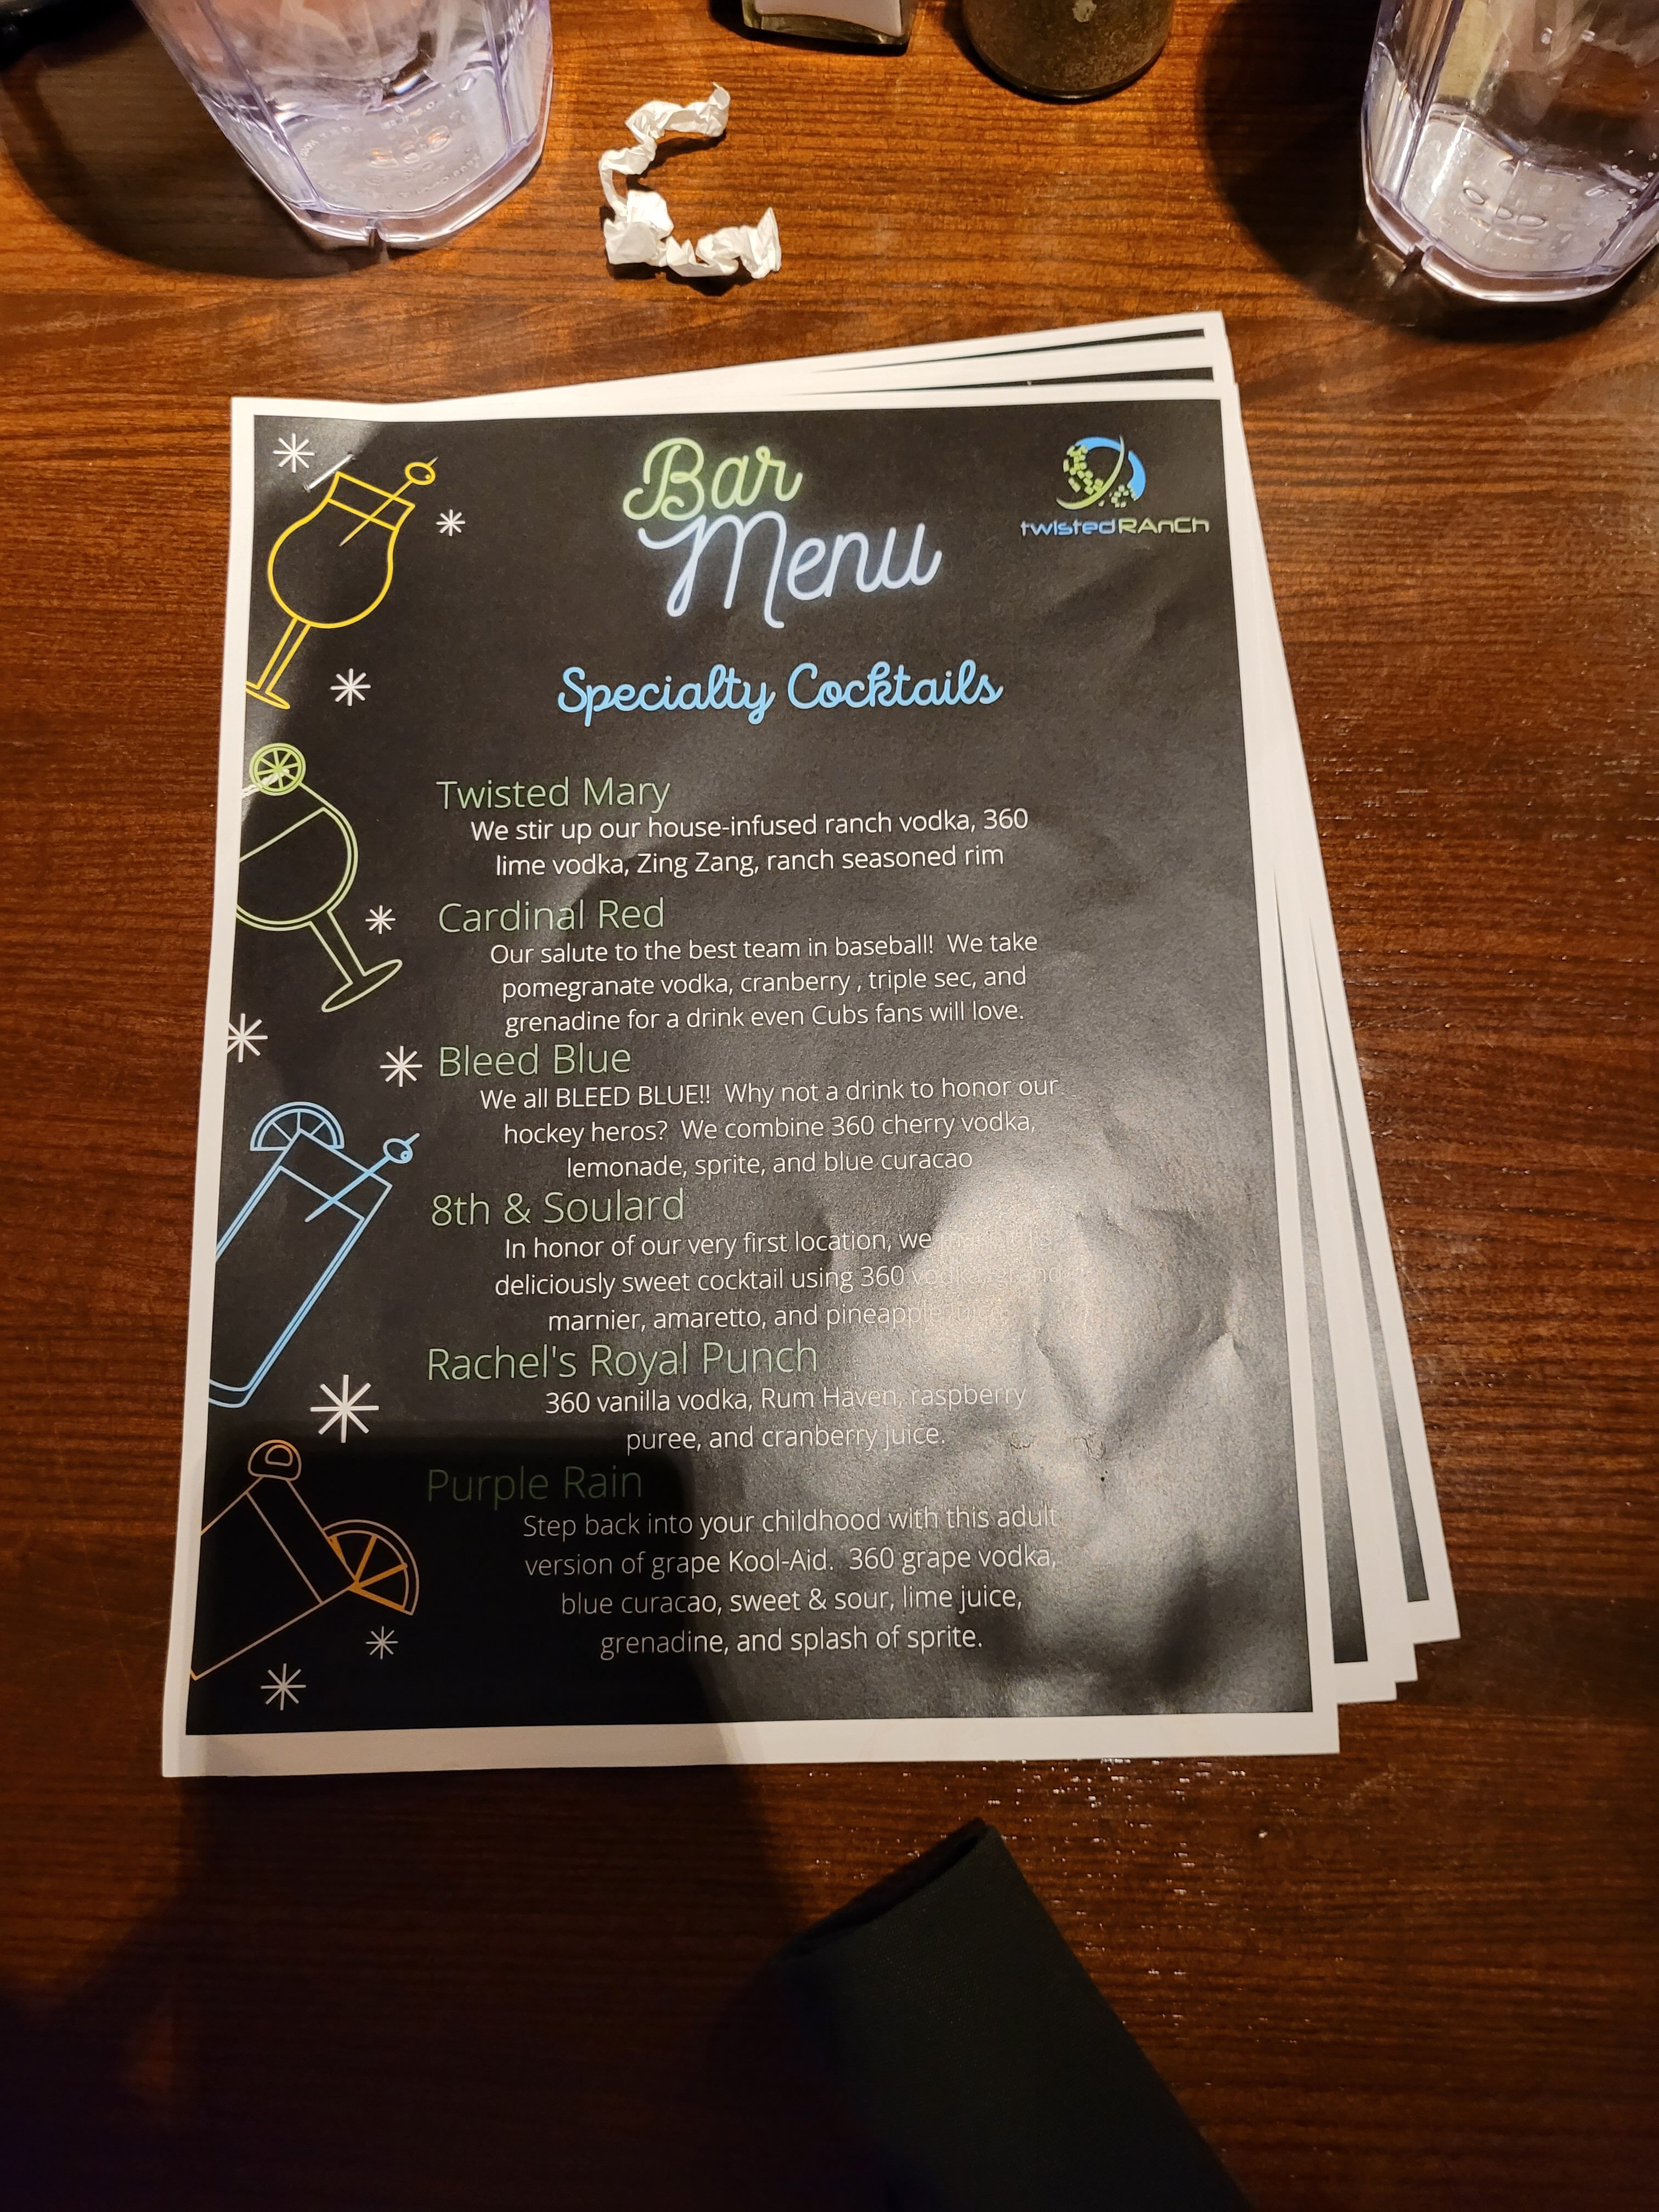 Bar
Menu
twistedRAnCh
Specialty Cocktails
Twisted Mary
We stir up our house-infused ranch vodka, 360
lime vodka, Zing Zang, ranch seasoned rim
Cardinal Red
Our salute to the best team in baseball! We take
pomegranate vodka, cranberry , triple sec, and
grenadine for a drink even Cubs fans will love.
Bleed Blue
We all BLEED BLUE!! Why not a drink to honor our
hockey heros? We combine 360 cherry vodka,
lemonade, sprite, and blue curacao
8th & Soulard
In honor of our very first location, we
deliciously sweet cocktail using 360
marnier, amaretto, and pineapple
Rachel's Royal Punch
360 vanilla vodka, Rum Haven, raspberry
puree, and cranberry juice.
Purple Rain
Step back into your childhood with this adult
version of grape Kool-Aid. 360 grape vodka,
blue curacao, sweet & sour, lime juice,
grenadine, and splash of sprite.